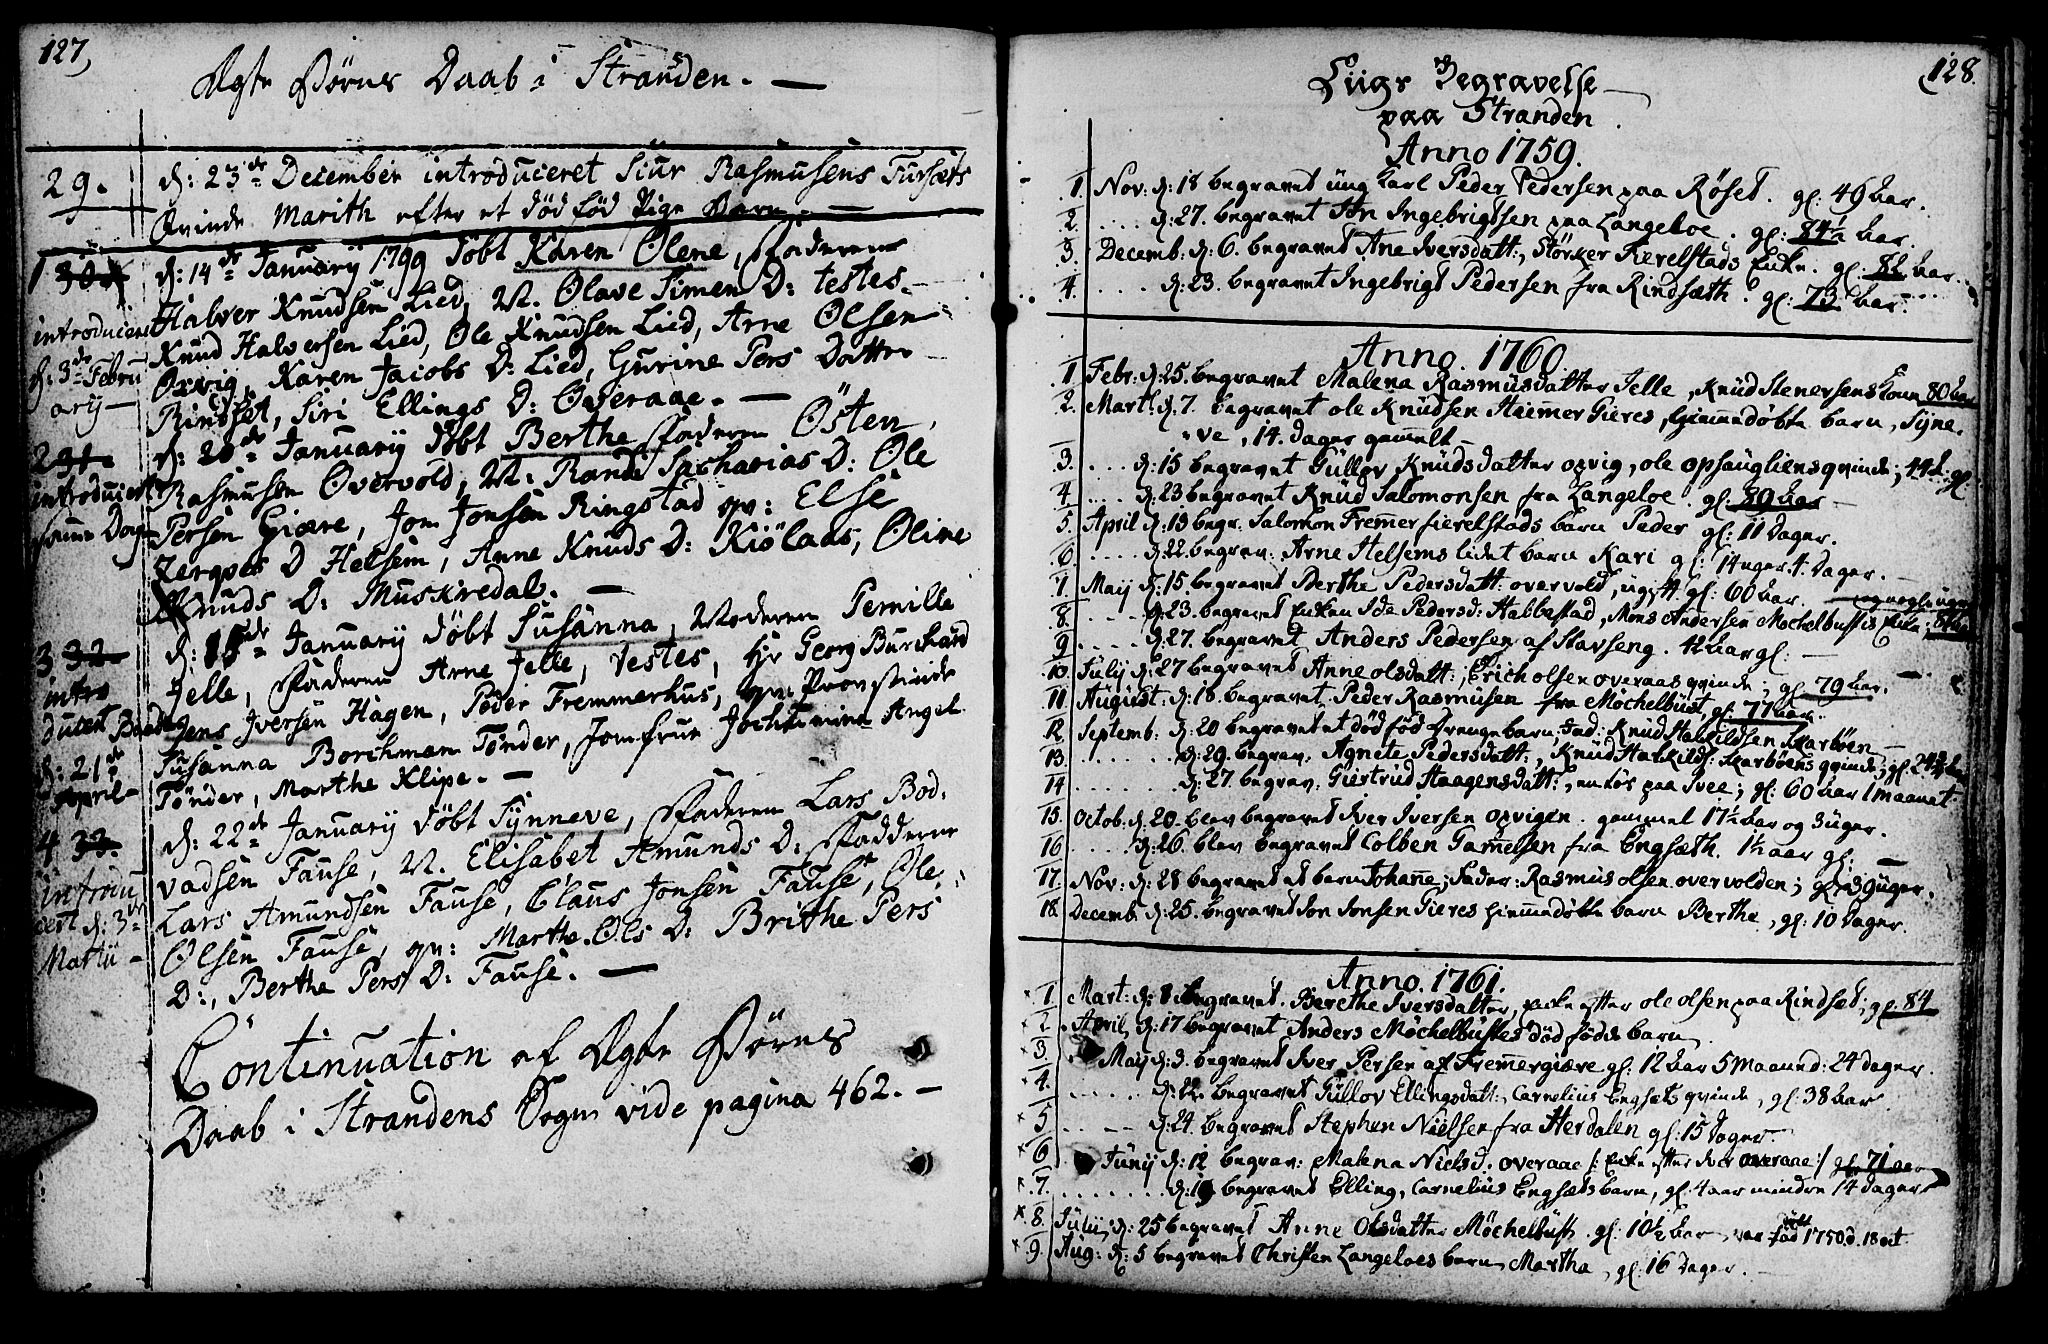 127,
Ægte Børns Daab i Stranden. —
29.
d: 23de December introduceret Siur Rasmusens Fursæts
Qvinde Marith efter et død fød Pige Barn. —
1 30
introducert
d: 3de Febru
ary —
d: 14de January 1799 døbt Karen Olene, Faderen
Halver Knudsen Lied, M. Olave Simen D: testes.
Knud Halversen Lied, Ole Knudsen Lied, Arne Olsen
Opvig, Karen Jacobs D: Lied, Gurine Pers Datter
Rindset, Siri Ellings D: Overaae. —
2 31.
introducert
samme Dag
d: 20de January døbt Berthe Faderen Østen
Rasmusen Overvold, M: Rande Sacharias D: Ole
Persen Giære, Jon Jonsen Ringstad qv: Else
D Helsem, Anne Knuds D: Kiölaas, Oline
Knuds D: Muskredal. —
3 32
intro
ducert
d: 21de
April
d: 15de January døbt Susanna, Moderen Pernille
Jelle, Faderen Arne Jelle, Testes, Hr Georg Burchard
Jens Iversen Hagen, Peder Fremmerhus, qv: Provstinde
Susanna Borchman Tønder, Jomfrue Jochumine Angel
Tønder, Marthe Klipe. —
4 33.
introdu
cert d: 3de
Martii —
d: 22de January døbt Synneve, Faderen Lars Bod,
vadsen Fause, M. Elisabet Amunds D: Fadderne
Lars Amundsen Fause, Claus Jonsen Fause, Ole
Olsen Fause, qv: Marthe Ols D: Brithe Pers
D:, Berthe Pers D: Fause. —
Continuation af Ægte Børns
Daab i Strandens Sogn vide pagina 462. —
128.
Liigs Begravelse
paa Stranden.
Anno 1759.
1 Nov: d: 18 begravet ung Karl Peder Pedersen paa Røset. gl: 49 Aar.
2. .... d: 27. begravet Jon Ingebrigtsen paa Langeloe. gl: 84½ Aar.
3. Decemb: d: 6. begravet Ane Iversdatt:, Størker Fierelstads Encke. gl: Aar.
4. .... d: 23. begravet Ingebrigt Pedersen fra Rindsæth. gl: 73 Aar.
Anno. 1760.
1 Febr: d: 25. begravet Malena Rasmusdatter Jelle, Knud Stenersens Kone 80 Aar
2. Mart: d. 7. begravet ole Knudsen Hiemmer Gieres, hiemmedøbte barn, Syne-
ve, 14. Dager gammelt —
3. .... d: 15 begravet Gullov Knudsdatter opvig, ole opsaugliens qvinde; 44 A: gl:
4. .... d: 23 begravet Knud Salomonsen fra Langeloe. gl: 89 Aar —
5. April d: 13 begr. Salomon Fremmer fierelstads barn Peder gl: 11 Dager.
6. .... d: 22. begrav: Arne Helsems lidet barn Kari gl: 14 uger. 4. Dager. —
7. May d: 15. begravet Berthe Pedersdatt: overvold, ugift gl: 60 Aar.
8. .... d: 23. begravet Enken Ide Pedersd: Habbestad, Mons Andersen Møchelbusts Enke;
9. .... d: 27. begravet Anders Pedersen af Stavseng. 42 Aar gl: —
10. July d: 27 begravet Anne olsdatt:, Erich olsen overaas qvinde; gl: 79 Aar.
11. August d: 18 begravet Peder Rasmusen fra Møchelbust, gl: 77 Aar.
12. Septemb: d: 20 begravet et død fød drengebarn, Fad: Knud Hakildsen Skarbøen —
13. ..... d: 29. begrav. Agnete Pedersdatt:, Knud Hakilds: Skarbøens qvinde; gl 24¾ Aar
14 ...... d: 27. begrav. Giertrud Haagensdatt:, en tøs paa Ivee; gl: 60 Aar 1 maanet.
15. Octob: d: 20. blev begravet Iver Iversen opvigen. gammel 17½ Aar og 3 uger.
16 .... d: 26. blev begravet Colben Gamelsen fra Engsæth. 1½ aar gl: —
17. Nov: d: 28 begravet et barn Johanne; Fader: Rasmus olsen overvolden; gl: 3 9 uger.
18. Decemb: d: 25. begravet Jon Jonsen Gieres hiemmedøbte barn Berthe, gl: 10 Dager.
Anno. 1761.
× 1. Mart: d: 8 begravet. Berethe Iversdatter, Enke efter ole olsen paa Rindset; gl: 84
× 2. April d: 17 begravet Anders Møchelbustes død fødte barn.
× 3. May d: 3. begravet Iver Persen af Fremmergiære gl: 12 Aar 5 Maaned: 24 dager.
× 4. ..... d: 22. begravet Gullov Ellingsdatt:, Cornelius Engsets qvinde, gl: 38 Aar.
× 5 .... d: 24. begravet Stephen Nielsen fra Herdalen gl: 15 Dager.
× 6 Juny d: 12 begrav: Malena Nielsd: overaae /: Enke efter Iver overaae :/ gl: 71 aar
× 7. ....... d: 19 begravet Elling, Cornelius Engsets barn, gl: 4 aar mindre 14 dager
× 8. July d: 25 begravet Anne Olsdatter Møchelbust. gl: 10½ Aar, var død født 1750 d. 18 oct
× 9. Aug: d: 5 begravet Christen Langeloes barn Martha, gl: 16 Dager. —